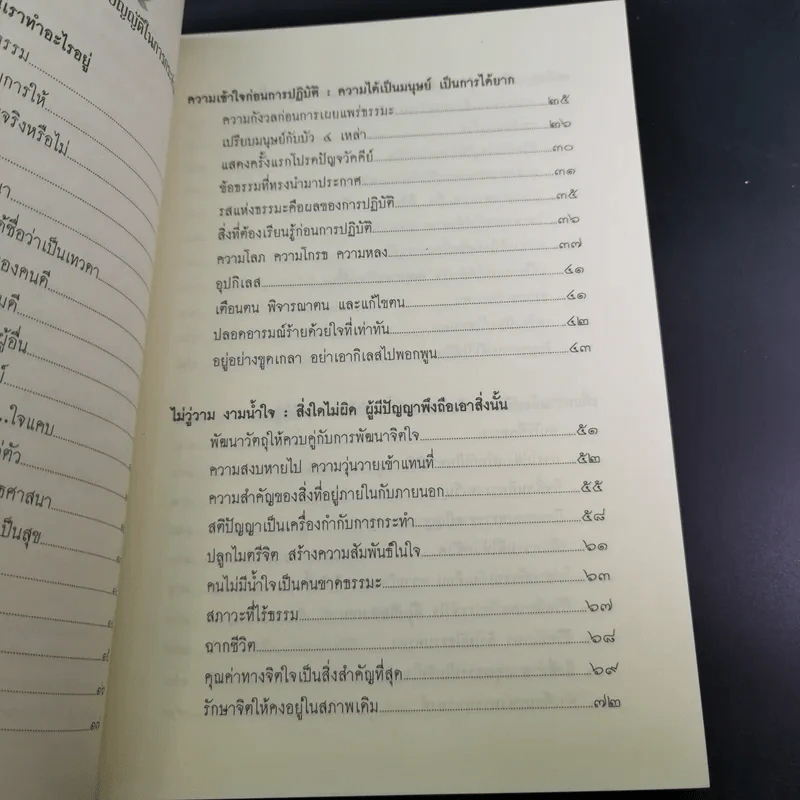 บัญญัติในการ
เราทำอะไรอยู่
ธรรม
การให้
จริงหรือไม่
ได้ชื่อว่าเป็นเทวดา
ของคนดี
ผู้อื่น
...ใจแคบ
ศาสนา
เป็นสุข
ความเข้าใจก่อนการปฏิบัติ : ความได้เป็นมนุษย์ เป็นการได้ยาก
ความกังวลก่อนการเผยแพร่ธรรมะ ๒๕
เปรียบมนุษย์กับบัว ๔ เหล่า ๒๖
แสดงครั้งแรกโปรดปัญจวัคคีย์ ๓๐
ข้อธรรมที่ทรงนำมาประกาศ ๓๑
รสแห่งธรรมะคือผลของการปฏิบัติ ๓๕
สิ่งที่ต้องเรียนรู้ก่อนการปฏิบัติ ๓๖
ความโลภ ความโกรธ ความหลง ๓๗
อุปกิเลส ๔๑
เตือนตน พิจารณาตน และแก้ไขตน ๔๑
ปลอดอารมณ์ร้ายด้วยใจที่เท่าทัน ๔๒
อยู่อย่างขูดเกลา อย่าเอากิเลสไปพอกพูน ๔๓
ไม่วู่วาม งามน้ำใจ : สิ่งใดไม่ผิด ผู้มีปัญญาพึงถือเอาสิ่งนั้น
พัฒนาวัตถุให้ควบคู่กับการพัฒนาจิตใจ ๕๑
ความสงบหายไป ความวุ่นวายเข้าแทนที่ ๕๒
ความสำคัญของสิ่งที่อยู่ภายในกับภายนอก ๕๕
สติปัญญาเป็นเครื่องกำกับการกระทำ ๕๘
ปลูกไมตรีจิต สร้างความสัมพันธ์ในใจ ๖๑
คนไม่มีน้ำใจเป็นคนขาดธรรมะ ๖๓
สภาวะที่ไร้ธรรม ๖๗
ฉากชีวิต ๖๘
คุณค่าทางจิตใจเป็นสิ่งสำคัญที่สุด ๖๙
รักษาจิตให้คงอยู่ในสภาพเดิม ๗๒